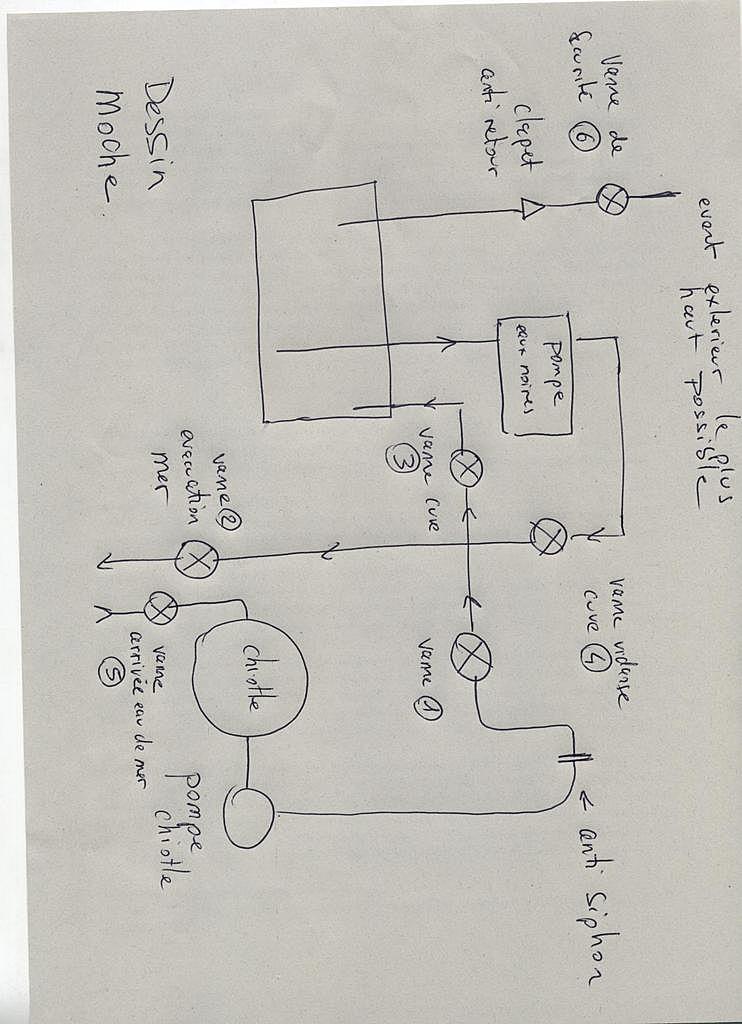 Dessin
Moche
vanne de
sécurité ⑥
clapet
anti retour
event exterieur le plus
haut possible
pompe
eaux noires
vanne cuve
③
vanne ②
evacuation
mer
vanne vidange
cuve ④
vanne ①
chiotte
vanne
arrivée eau de mer
⑤
pompe
chiotte
< anti siphon